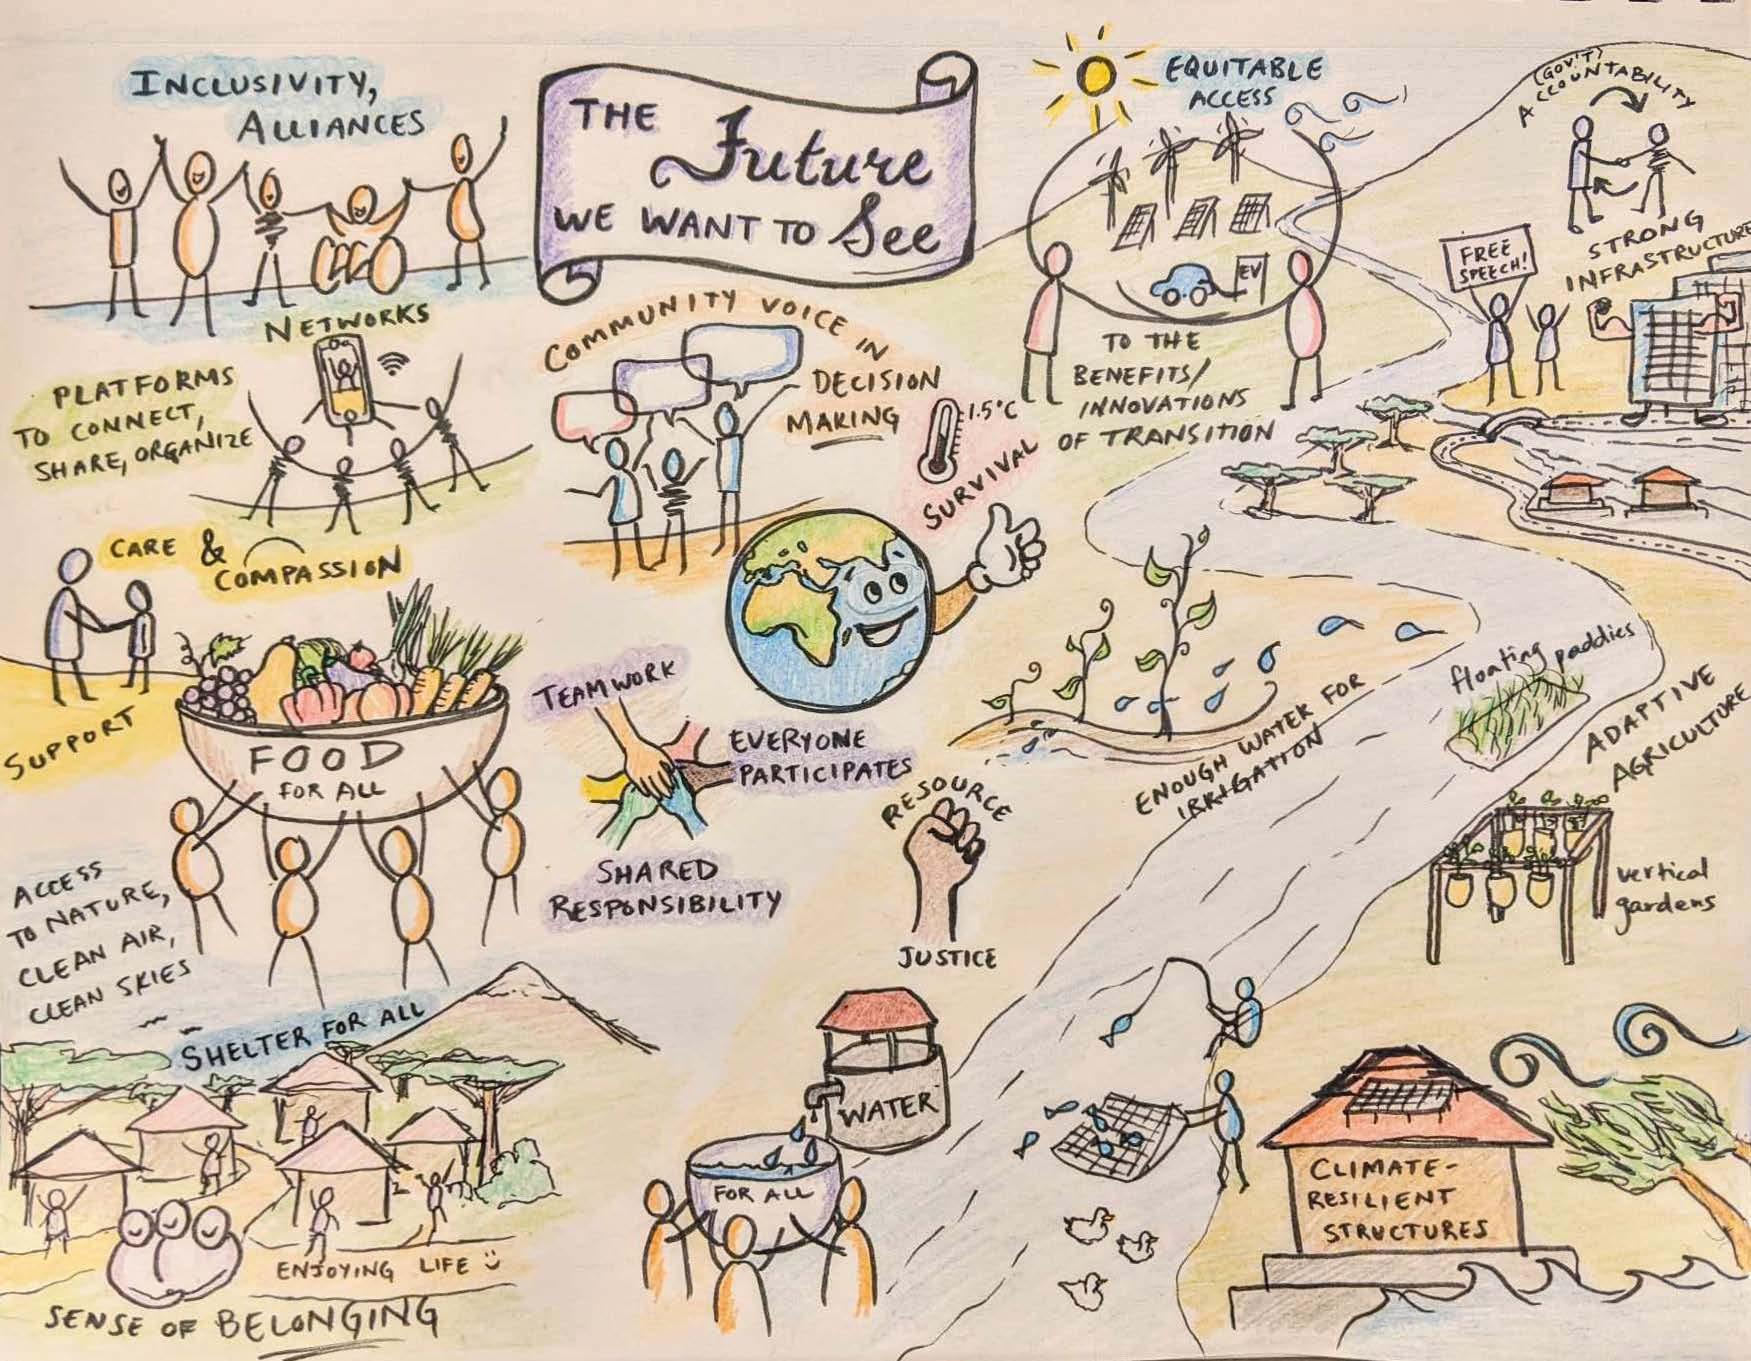 INCLUSIVITY,
ALLIANCES
THE
Future
WE WANT TO See
EQUITABLE
ACCESS
EV
TO THE
BENEFITS/
INNOVATIONS
OF TRANSITION
(GOV'T)
ACCOUNTABILITY
FREE
SPEECH!
STRONG
INFRASTRUCTURE
NETWORKS
PLATFORMS
TO CONNECT,
SHARE, ORGANIZE
COMMUNITY VOICE IN
DECISION
MAKING
1.5°C
SURVIVAL
CARE &
COMPASSION
SUPPORT
FOOD
FOR ALL
TEAMWORK
EVERYONE
PARTICIPATES
SHARED
RESPONSIBILITY
RESOURCE
JUSTICE
ENOUGH WATER FOR
IRRIGATION
floating paddies
ADAPTIVE
AGRICULTURE
vertical
gardens
ACCESS
TO NATURE,
CLEAN AIR,
CLEAN SKIES
SHELTER FOR ALL
ENJOYING LIFE
SENSE OF BELONGING
WATER
FOR ALL
CLIMATE-
RESILIENT
STRUCTURES